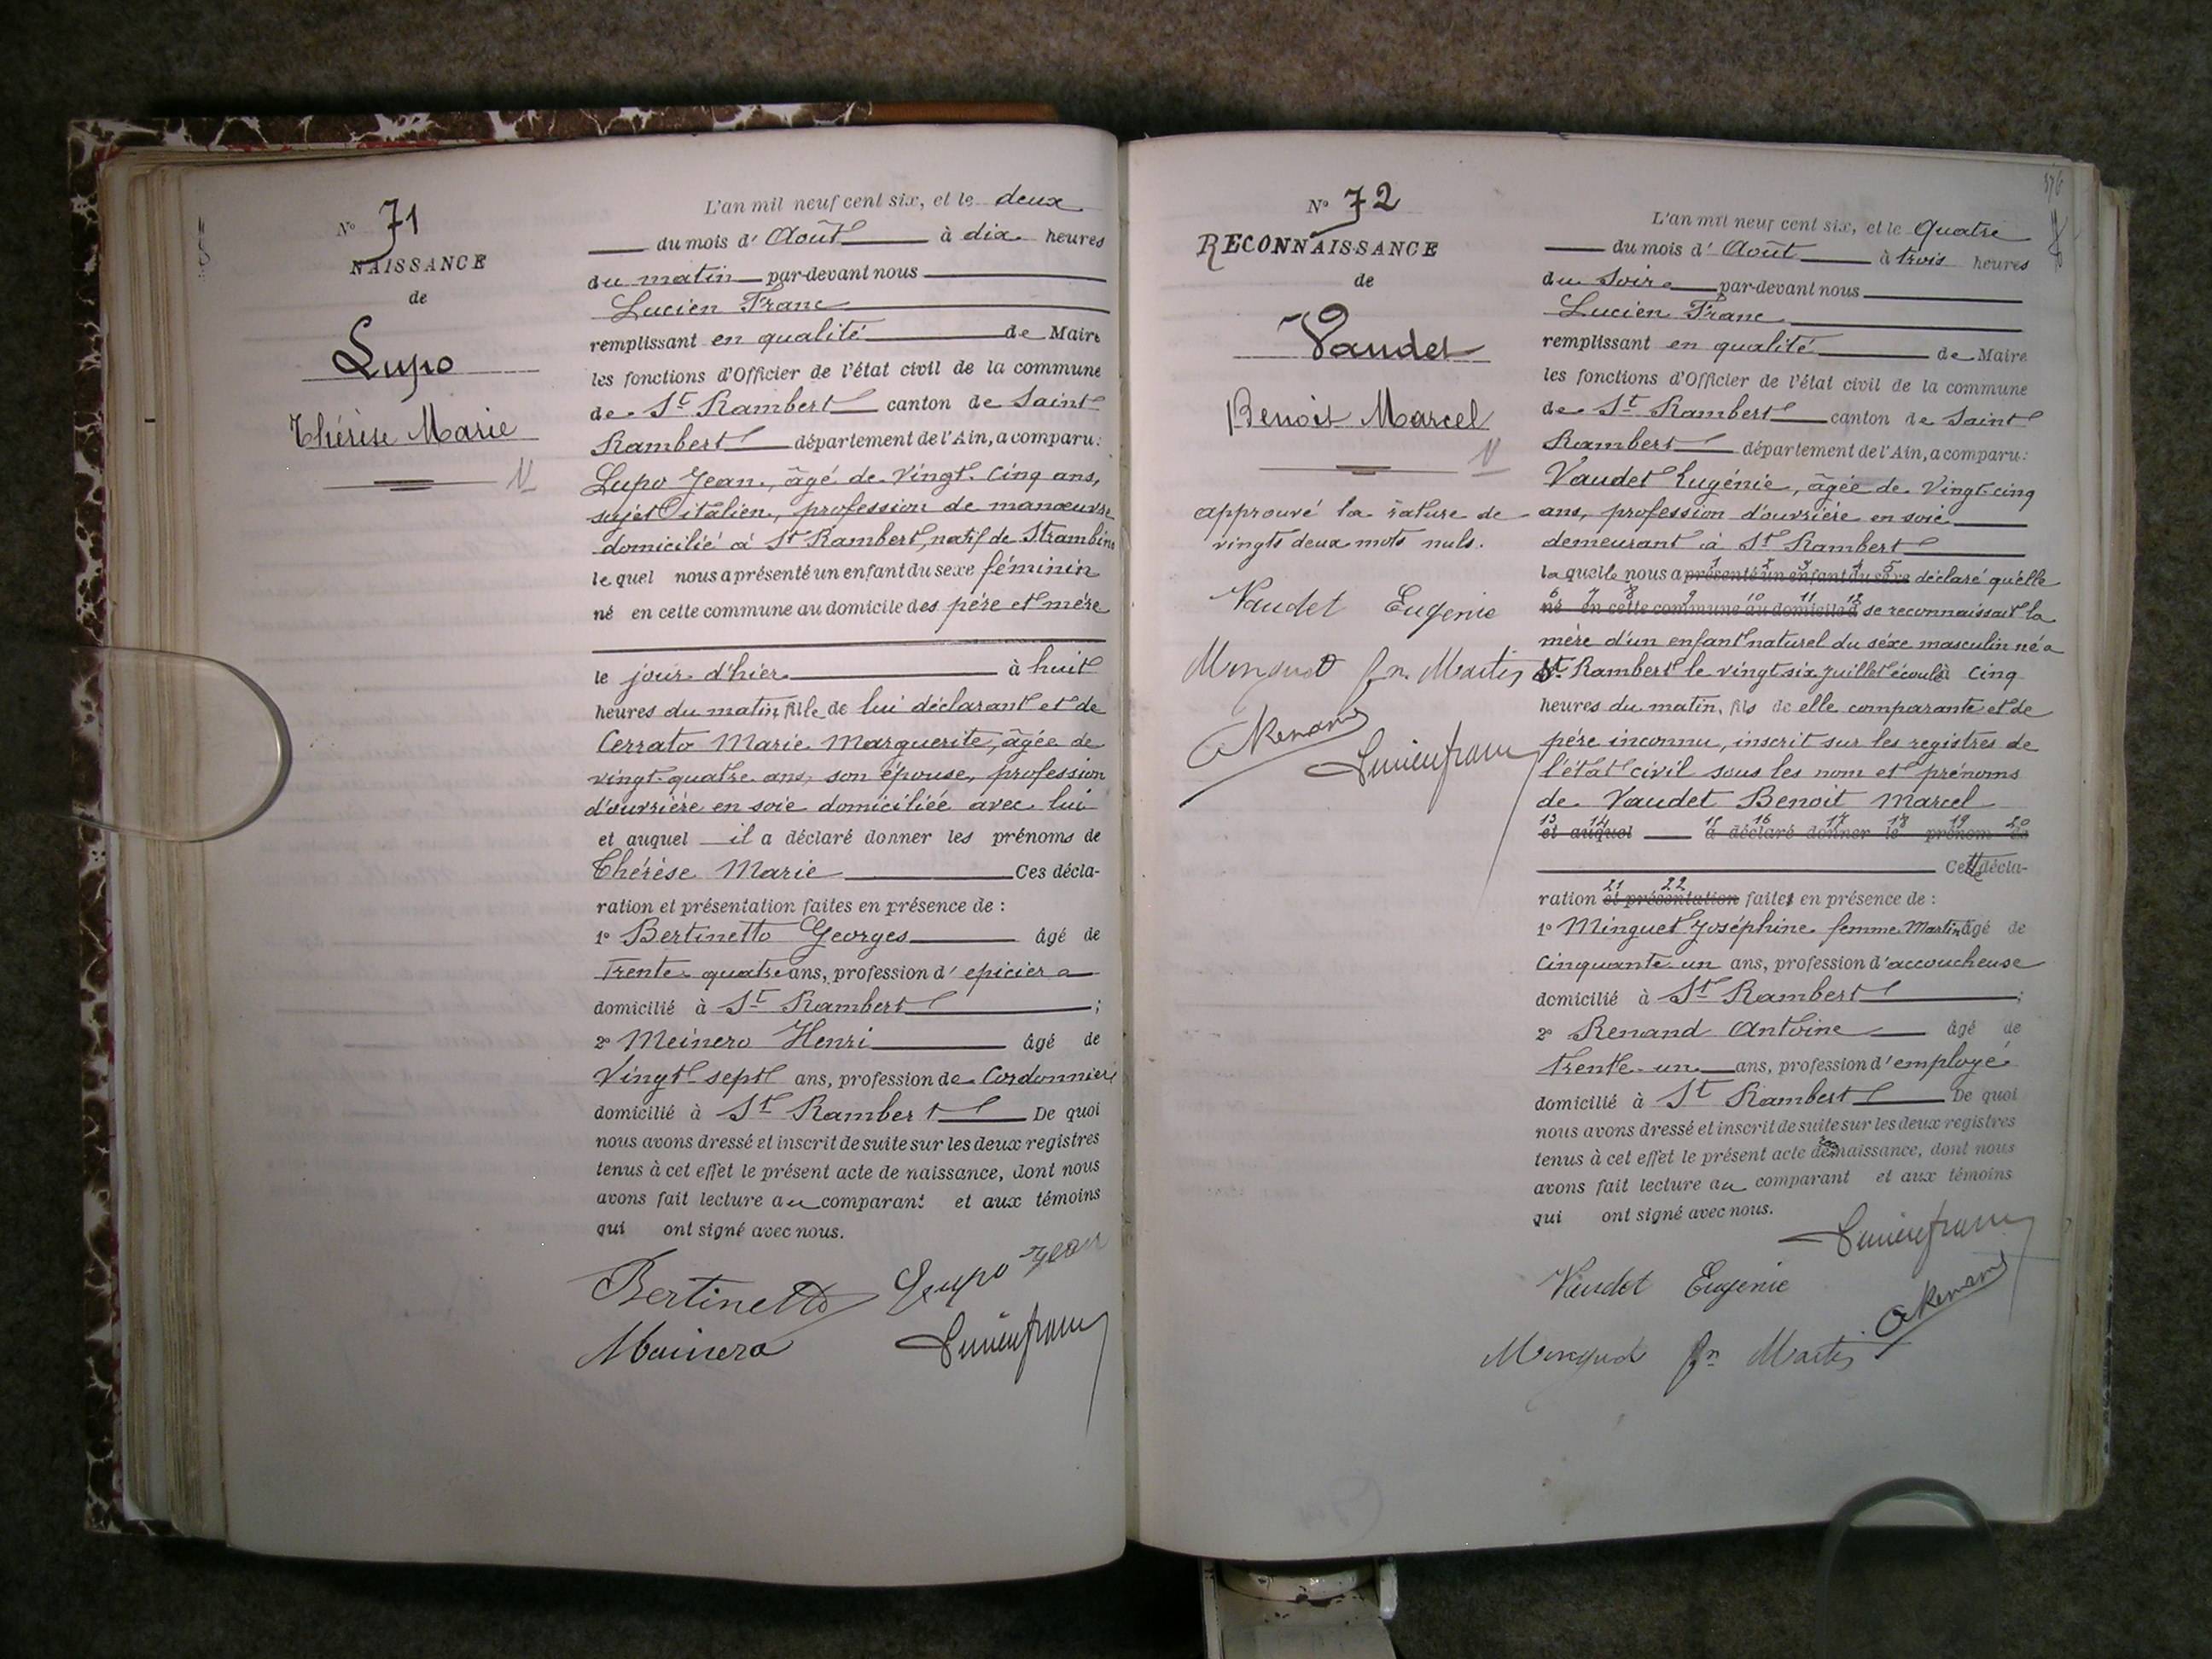 N° 71
NAISSANCE
de
Lupo
Thérèse Marie
N
L'an mil neuf cent six, et le deux
du mois d'Août à dix heures
du matin par-devant nous
Lucien Franc
remplissant en qualité de Maire
les fonctions d'Officier de l'état civil de la commune
de St Rambert canton de Saint
Rambert département de l'Ain, a comparu:
Lupo Jean, âgé de vingt cinq ans,
sujet italien, profession de manœuvre
domicilié à St Rambert, natif de Strambino
lequel nous a présenté un enfant du sexe féminin
né en cette commune au domicile des père et mère
le jour d'hier à huit
heures du matin, fille de lui déclarant et de
Cerrato Marie Marguerite, âgée de
vingt-quatre ans, son épouse, profession
d'ouvrière en soie domiciliée avec lui
et auquel il a déclaré donner les prénoms de
Thérèse Marie Ces décla-
ration et présentation faites en présence de :
1° Bertinetto Georges âgé de
Trente quatre ans, profession d'epicier
domicilié à St Rambert ;
2° Meinero Henri âgé de
Vingt-sept ans, profession de Cordonnier
domicilié à St Rambert De quoi
nous avons dressé et inscrit de suite sur les deux registres
tenus à cet effet le présent acte de naissance, dont nous
avons fait lecture au comparant et aux témoins
qui ont signé avec nous.
Bertinetto Lupo Jean
Mainero Lucien franc
376
N° 72
RECONNAISSANCE
de
Vaudet
Benoit Marcel
N
approuvé la rature de
vingts deux mots nuls.
Vaudet Eugenie
Minguet fn Martin
A Renand
Lucien franc
L'an mil neuf cent six, et le Quatre
du mois d'Août à trois heures
du Soir par-devant nous
Lucien Franc
remplissant en qualité de Maire
les fonctions d'Officier de l'état civil de la commune
de St Rambert canton de Saint
Rambert département de l'Ain, a comparu:
Vaudet Eugénie, âgée de Vingt-cinq
ans, profession d'ouvrière en soie
demeurant à St Rambert
1 2 3 4 5
laquelle nous a présenté un enfant du sexe déclaré qu'elle
6 7 8 9 10 11 12
né en cette commune au domicile d se reconnaissait la
mère d'un enfant naturel du séxe masculin né à
St Rambert le vingt six juillet écoulé à cinq
heures du matin, fils de elle comparante et de
père inconnu, inscrit sur les registres de
l'état civil sous les nom et prénoms
de Vaudet Benoit Marcel
13 14 15 16 17 18 19 20
et auquel a déclaré donner le prénom de
Cette décla-
21 22
ration et présentation faites en présence de :
1° Minguet Joséphine femme Martin âgé de
Cinquante un ans, profession d'accoucheuse
domicilié à St Rambert ;
2° Renand Antoine âgé de
trente-un ans, profession d'employé
domicilié à St Rambert De quoi
nous avons dressé et inscrit de suite sur les deux registres
tenus à cet effet le présent acte de naissance, dont nous
avons fait lecture au comparant et aux témoins
qui ont signé avec nous.
Lucien franc
Vaudet Eugenie
A Renand
Minguet fn Martin